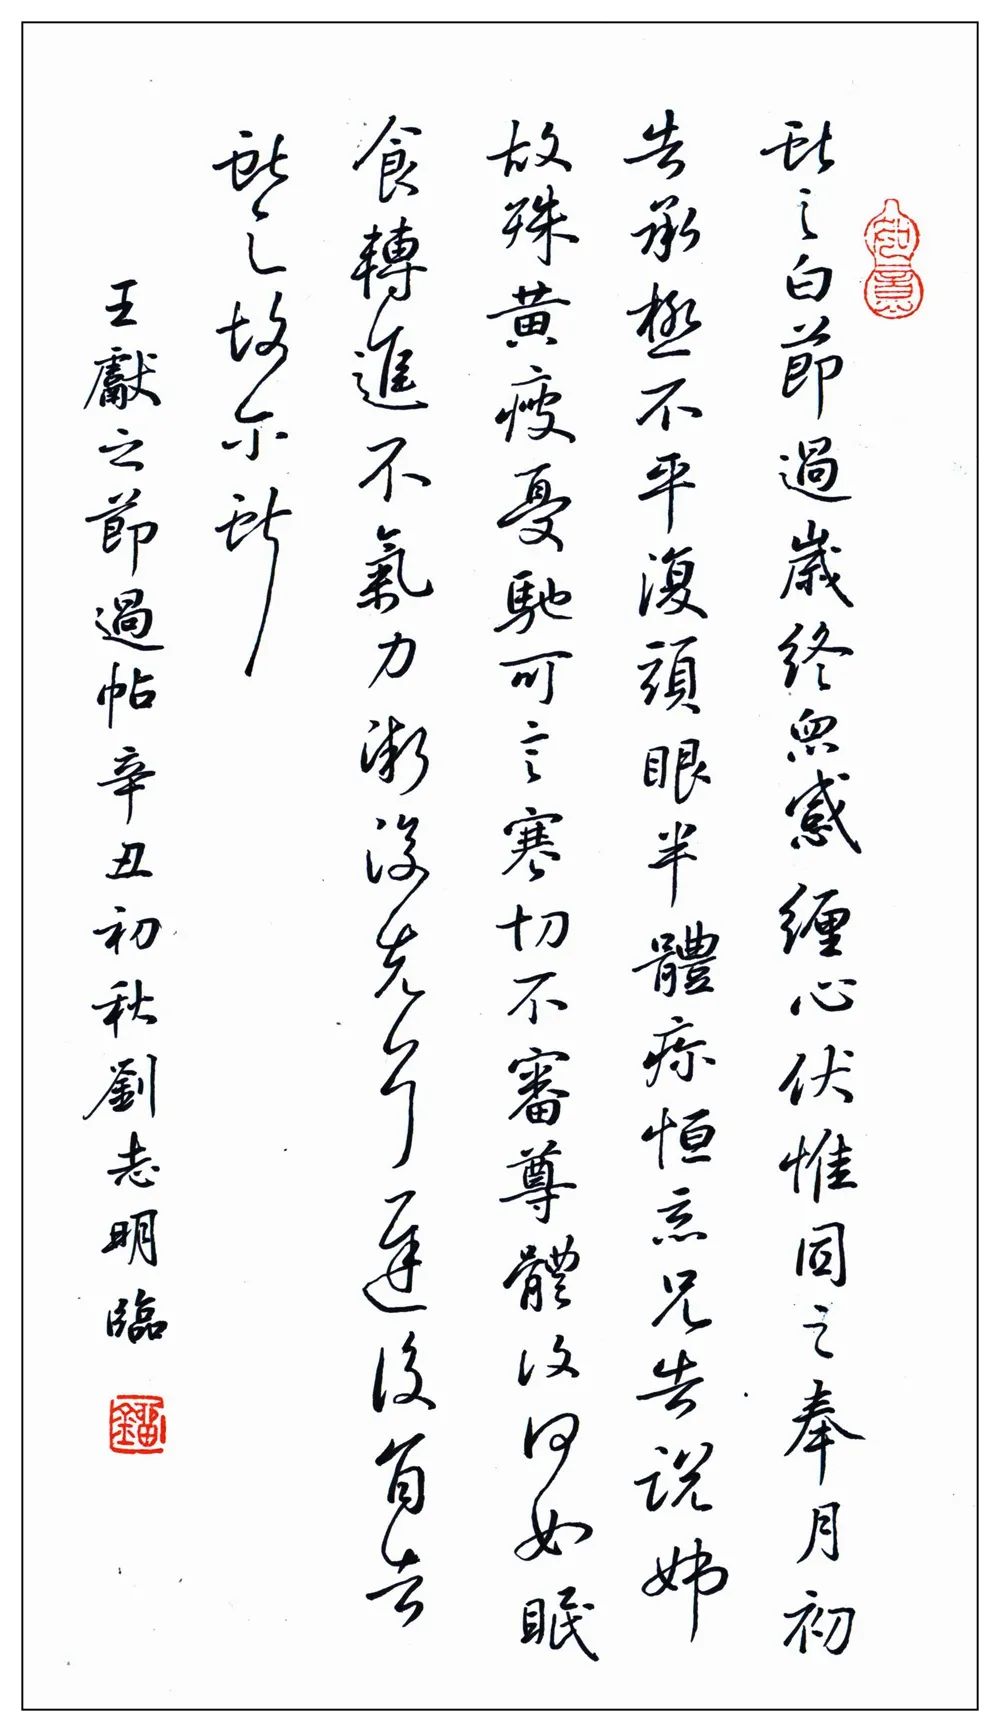 獻之白節過歲終眾感纏心伏惟同之奉月初
告承極不平復頭眼半體疼恒惡兄告說姊
故殊黃瘦憂馳可言寒切不審尊體復何如眠
食轉進不氣力漸復先遲後
獻之故爾獻
王獻之節過帖辛丑初秋劉志明臨